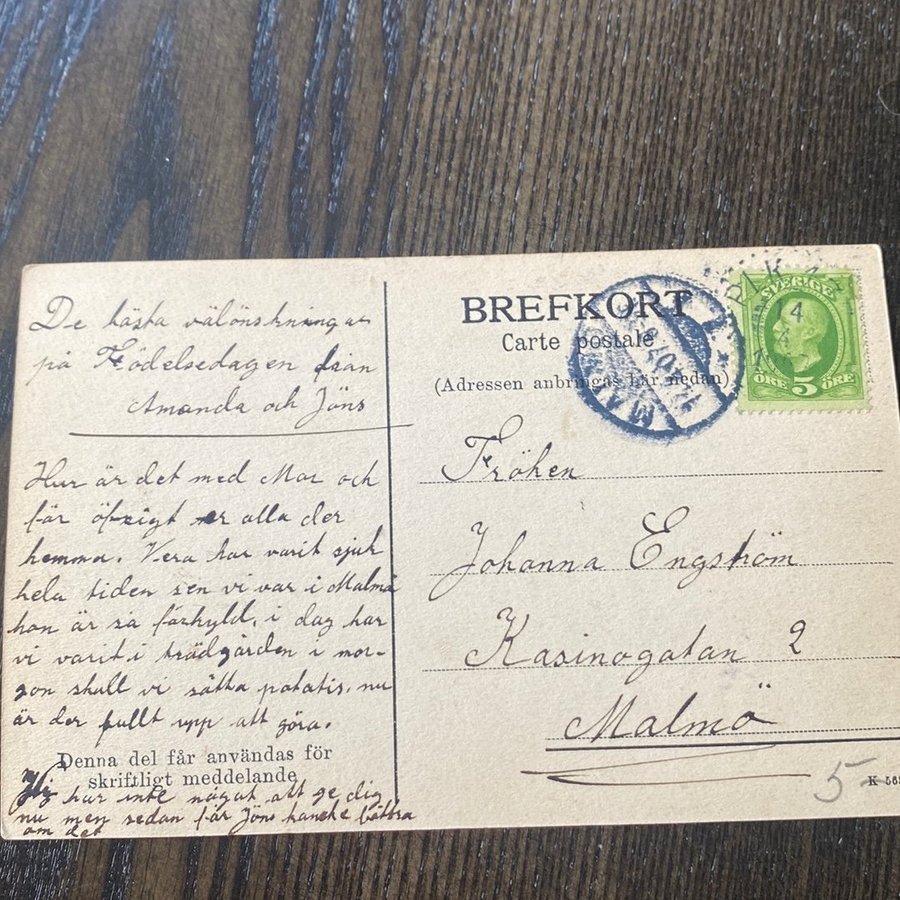 De bästa välönskningar
på Födelsedagen från
Amanda och Jöns
Hur är det med Mor och
för öfrigt er alla der
hemma. Vera har varit sjuk
hela tiden sen vi var i Malmö
hon är så förkyld, i dag har
vi varit i trädgården i mor-
gon skall vi sätta potatis, nu
är der fullt upp att göra.
Denna del får användas för
skriftligt meddelande
har inte något att ge dig
nu men sedan får Jöns kanske bättra
om det
BREFKORT
Carte postale
(Adressen anbringas här nedan)
SVERIGE
ÖRE 5 ÖRE
Fröken
Johanna Engström
Kasinogatan 2
Malmö
5